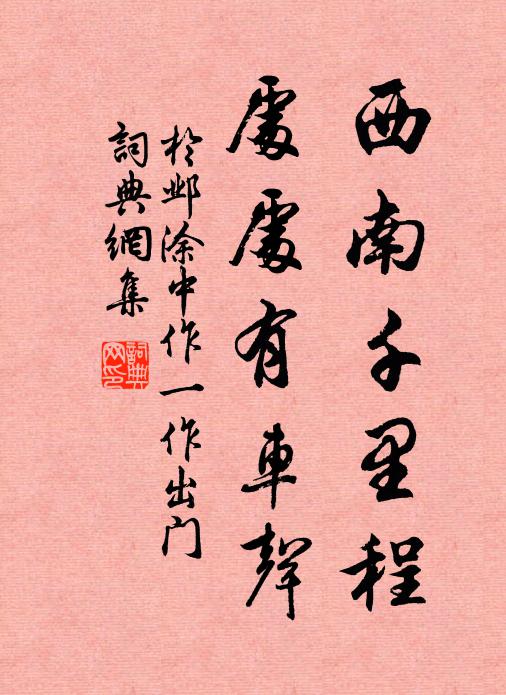 西南千里程
處處有車聲
於邺涂中作一作出门
詞典網集
詞典网印